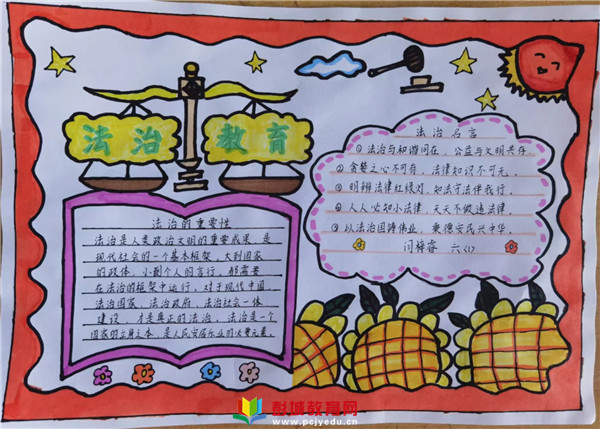 法治教育
法治的重要性
法治是人类政治文明的重要成果，是
现代社会的一个基本框架。大到国家
的政体，小到个人的言行，都需要
在法治的框架中运行。对于现代中国，
法治国家、法治政府、法治社会一体
建设，才是真正的法治。法治是一个
国家的立身之本，是人民安居乐业的必要元素。
法治名言
①法治与和谐同在，公益与文明共存。
②贪婪之心不可有，法律知识不可无。
③明辨法律红绿灯，知法守法伴我行。
④人人必知小法律，天天不做违法律。
⑤以法治国铸伟业，秉德安民兴中华。
闫梓睿 六〈1〉
彭城教育网
www.pcjyedu.cn